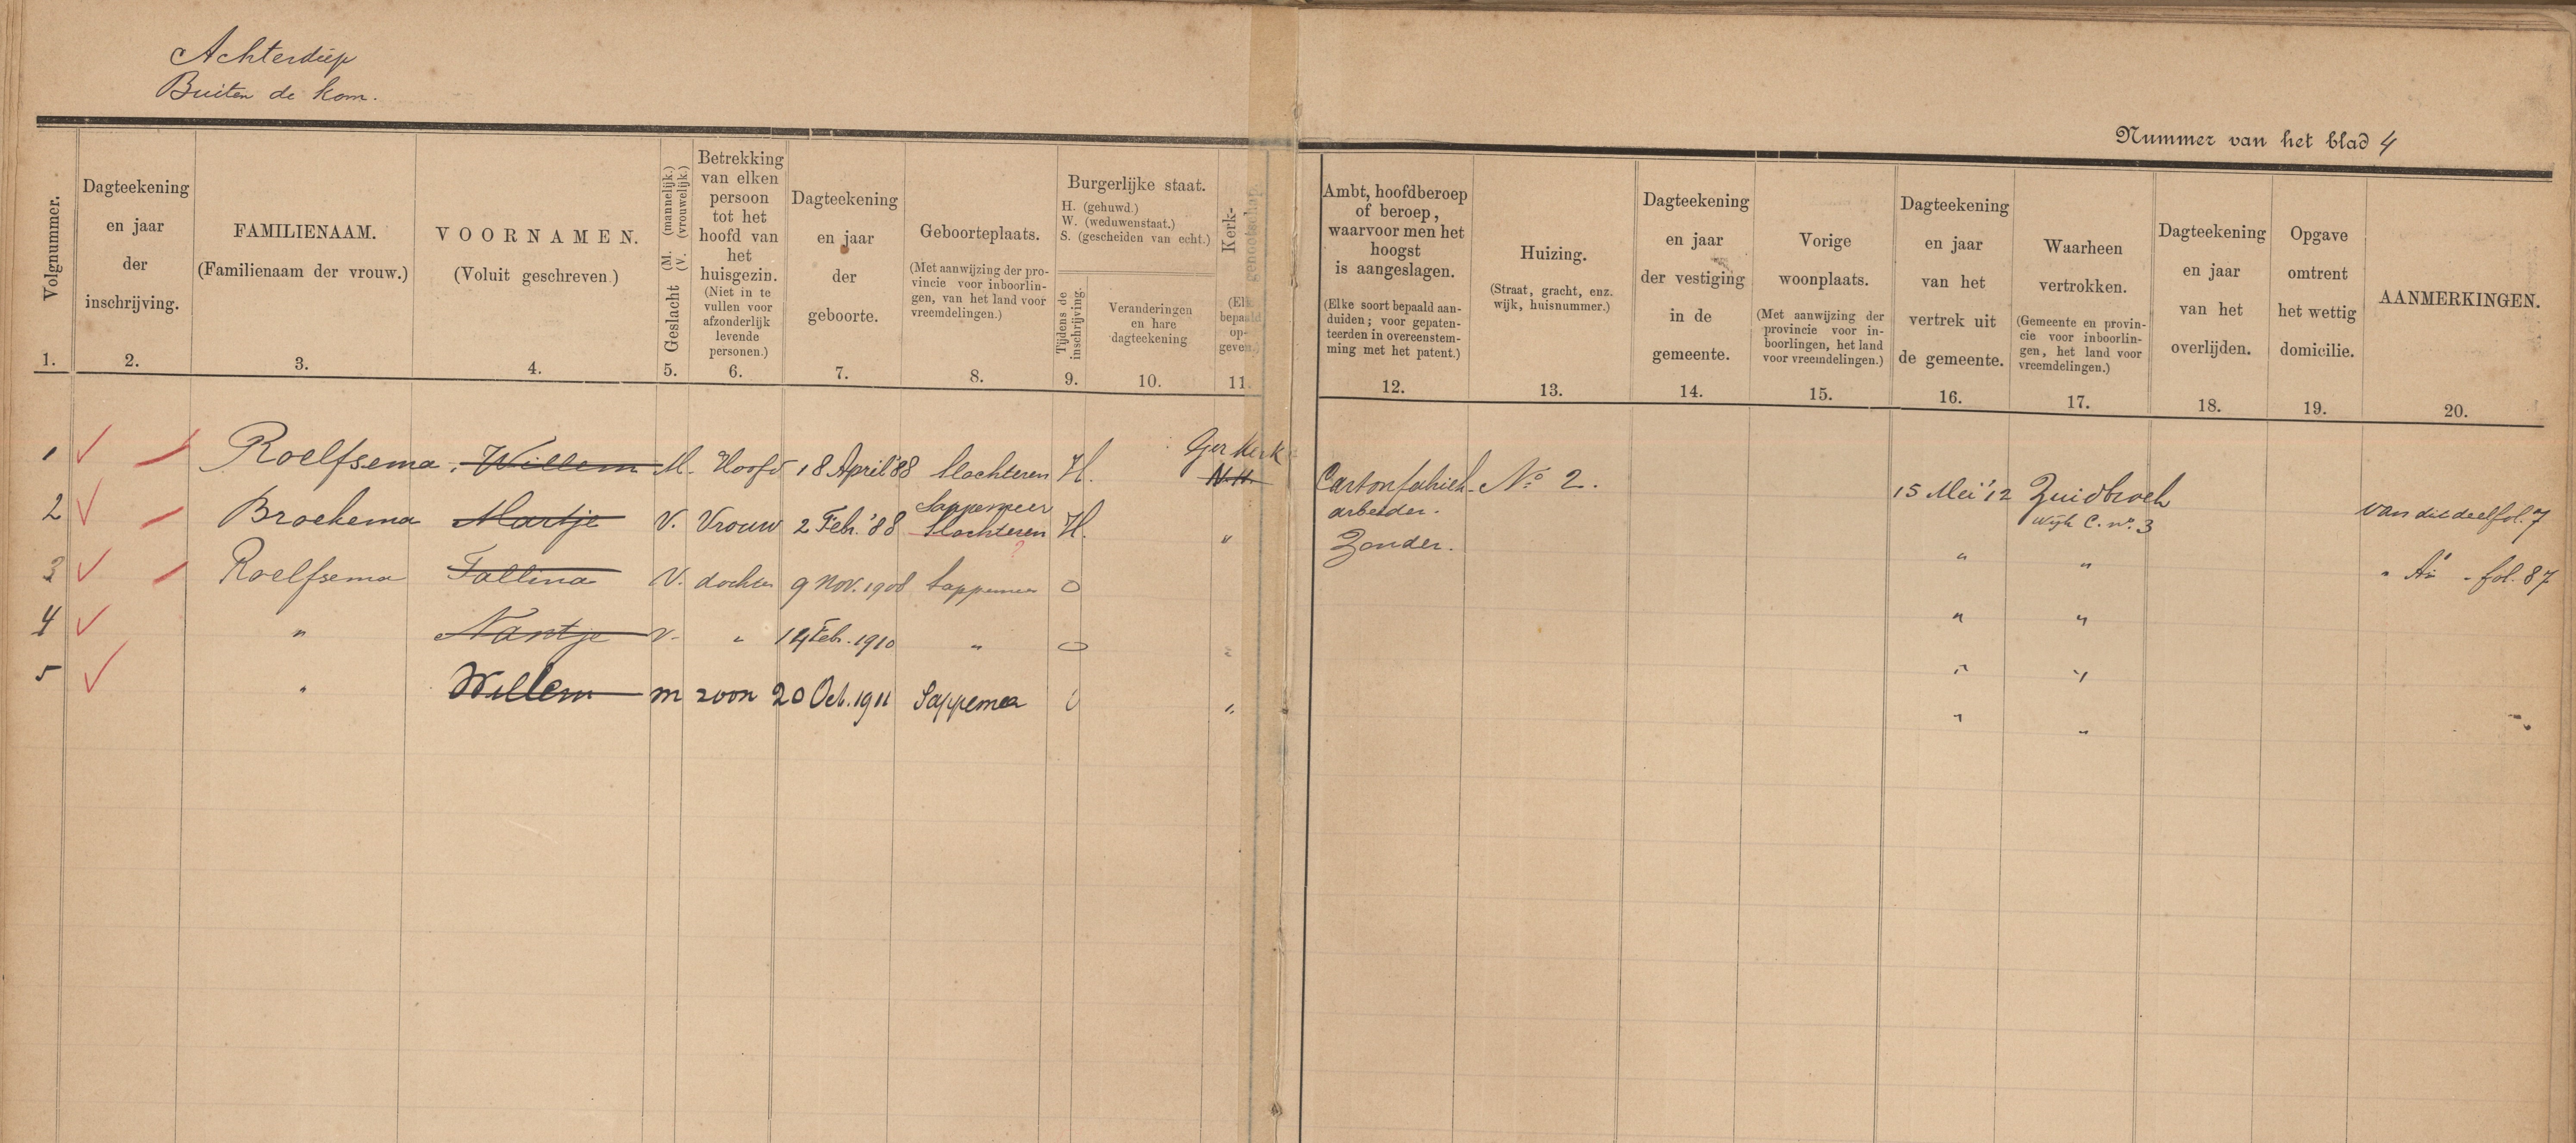 Achterdiep
Buiten de kom.
Nummer van het blad 4
Volgnummer.
1.
Dagteekening
en jaar
der
inschrijving.
2.
FAMILIENAAM.
(Familienaam der vrouw.)
3.
VOORNAMEN.
(Voluit geschreven.)
4.
Geslacht (M. (mannelijk.)
(V. (vrouwelijk.)
5.
Betrekking
van elken
persoon
tot het
hoofd van
het
huisgezin.
(Niet in te
vullen voor
afzonderlijk
levende
personen.)
6.
Dagteekening
en jaar
der
geboorte.
7.
Geboorteplaats.
(Met aanwijzing der pro-
vincie voor inboorlin-
gen, van het land voor
vreemdelingen.)
8.
Burgerlijke staat.
H. (gehuwd.)
W. (weduwenstaat.)
S. (gescheiden van echt.)
Tijdens de
inschrijving.
9.
Veranderingen
en hare
dagteekening
10.
Kerk-
genootschap.
(Elk
bepaald
op-
geven.)
11.
Ambt, hoofdberoep
of beroep,
waarvoor men het
hoogst
is aangeslagen.
(Elke soort bepaald aan-
duiden; voor gepaten-
teerden in overeenstem-
ming met het patent.)
12.
Huizing.
(Straat, gracht, enz.
wijk, huisnummer.)
13.
Dagteekening
en jaar
der vestiging
in de
gemeente.
14.
Vorige
woonplaats.
(Met aanwijzing der
provincie voor in-
boorlingen, het land
voor vreemdelingen.)
15.
Dagteekening
en jaar
van het
vertrek uit
de gemeente.
16.
Waarheen
vertrokken.
(Gemeente en provin-
cie voor inboorlin-
gen, het land voor
vreemdelingen.)
17.
Dagteekening
en jaar
van het
overlijden.
18.
Opgave
omtrent
het wettig
domicilie.
19.
AANMERKINGEN.
20.
Ger Kerk
1 Roelfsema, Willem M. Hoofd 18 April '88 Slochteren H. N.H. Cartonfabriek- No 2. 15 Mei '12 Zuidbroek
arbeider. Wijk C. no. 3 van dit deel fol. 7
Sappemeer
2 Broekema Martje V. Vrouw 2 Febr. '88 Slochteren H. " Zonder. " " " A " fol. 87
3 Roelfsema Fallina V. dochter 9 Nov. 1908 Sappemeer O " "
4 " Nantje V. " 14 Febr. 1910 " O " " "
5 " Willem m zoon 20 Oct. 1911 Sappemeer O " " "